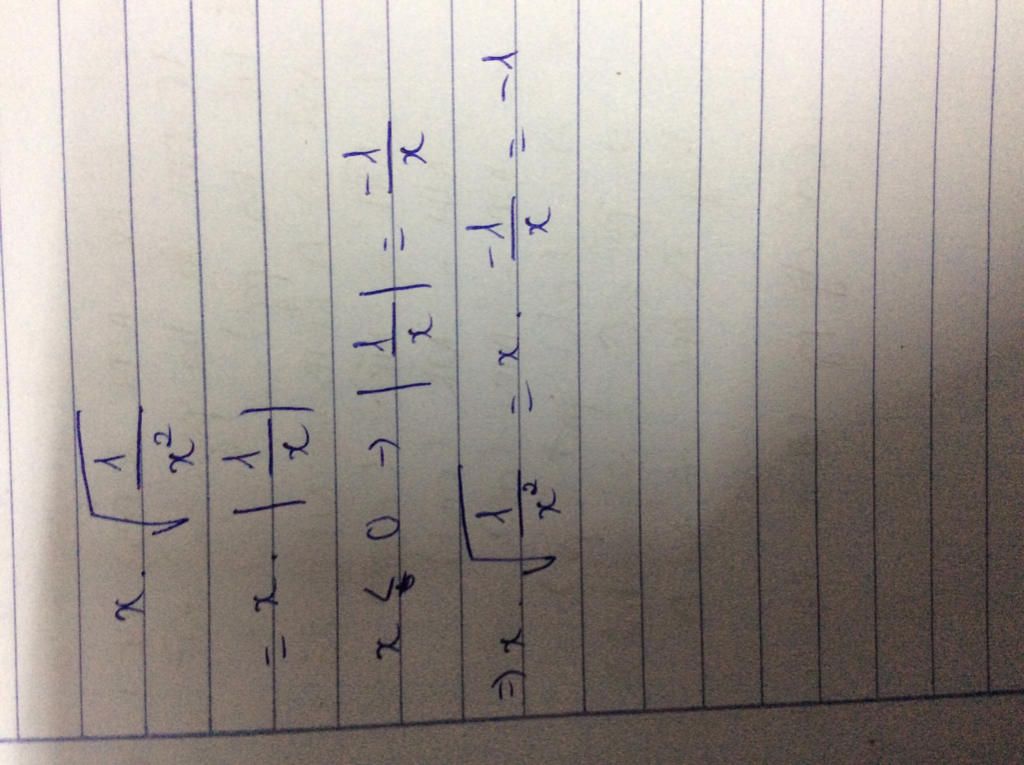 x . √(1/x²)
= x . |1/x|
x < 0 → |1/x| = -1/x
⇒ x . √(1/x²) = x . -1/x = -1